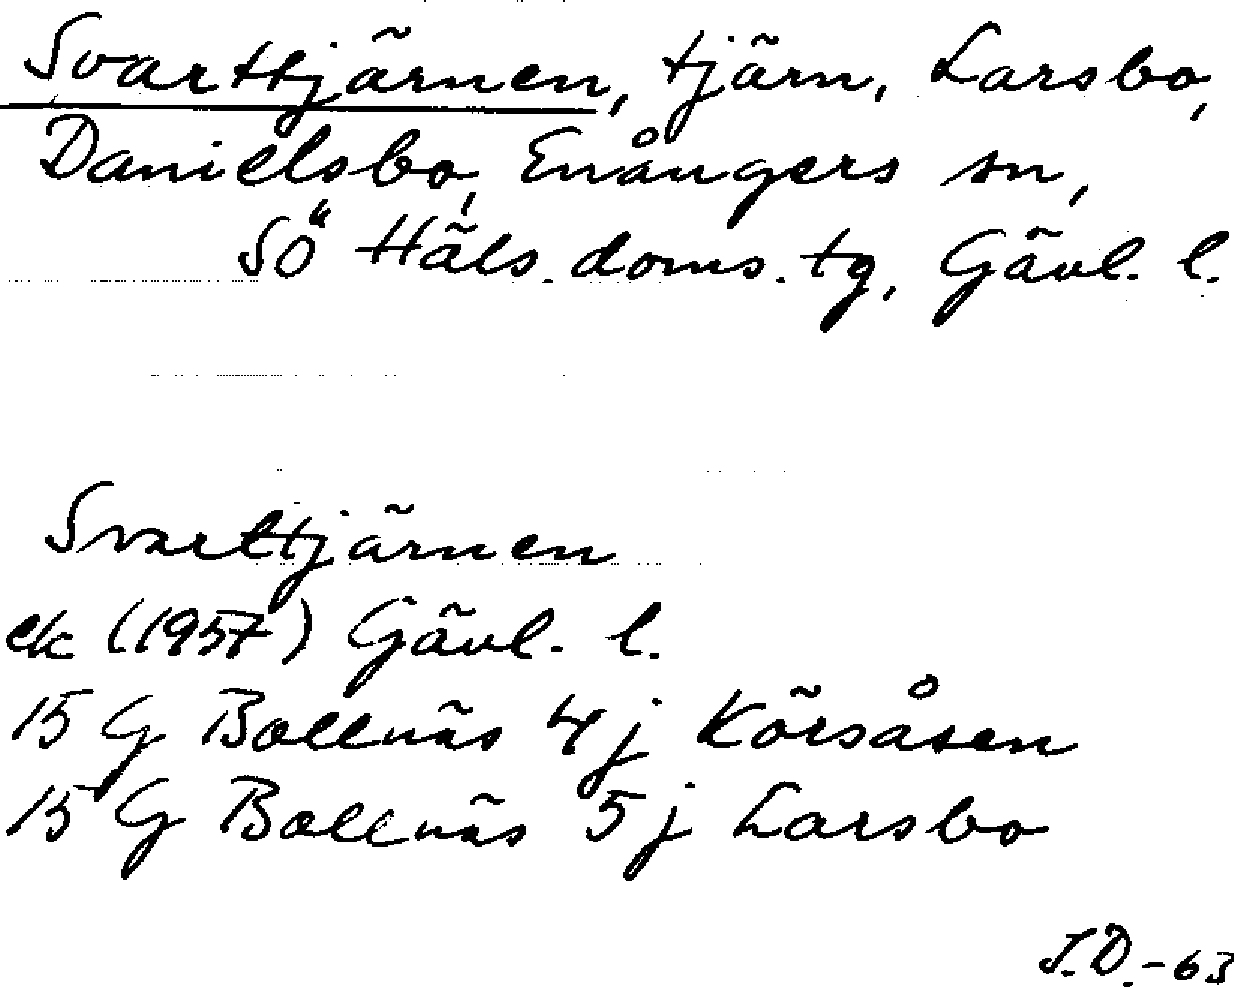 Svarttjärnen, tjärn, Larsbo,
Danielsbo, Enångers sn,
SÖ Häls. doms. tg, Gävl. l.
Svarttjärnen
ek (1957) Gävl. l.
15 G Bollnäs 4j Körsåsen
15 G Bollnäs 5j Larsbo
J.D.-63